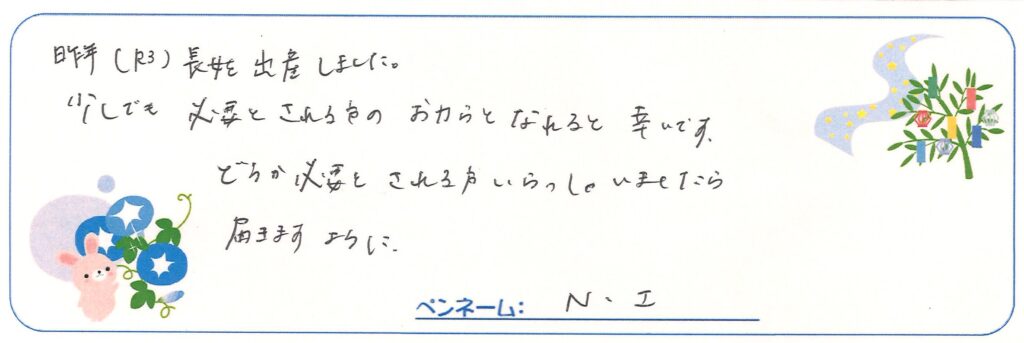 昨年(R3)長女を出産しました。
少しでも 必要とされる方の お力らと なれると 幸いです。
どうか必要と される方いらっしゃいましたら
届きます ように。
ペンネーム: N・I